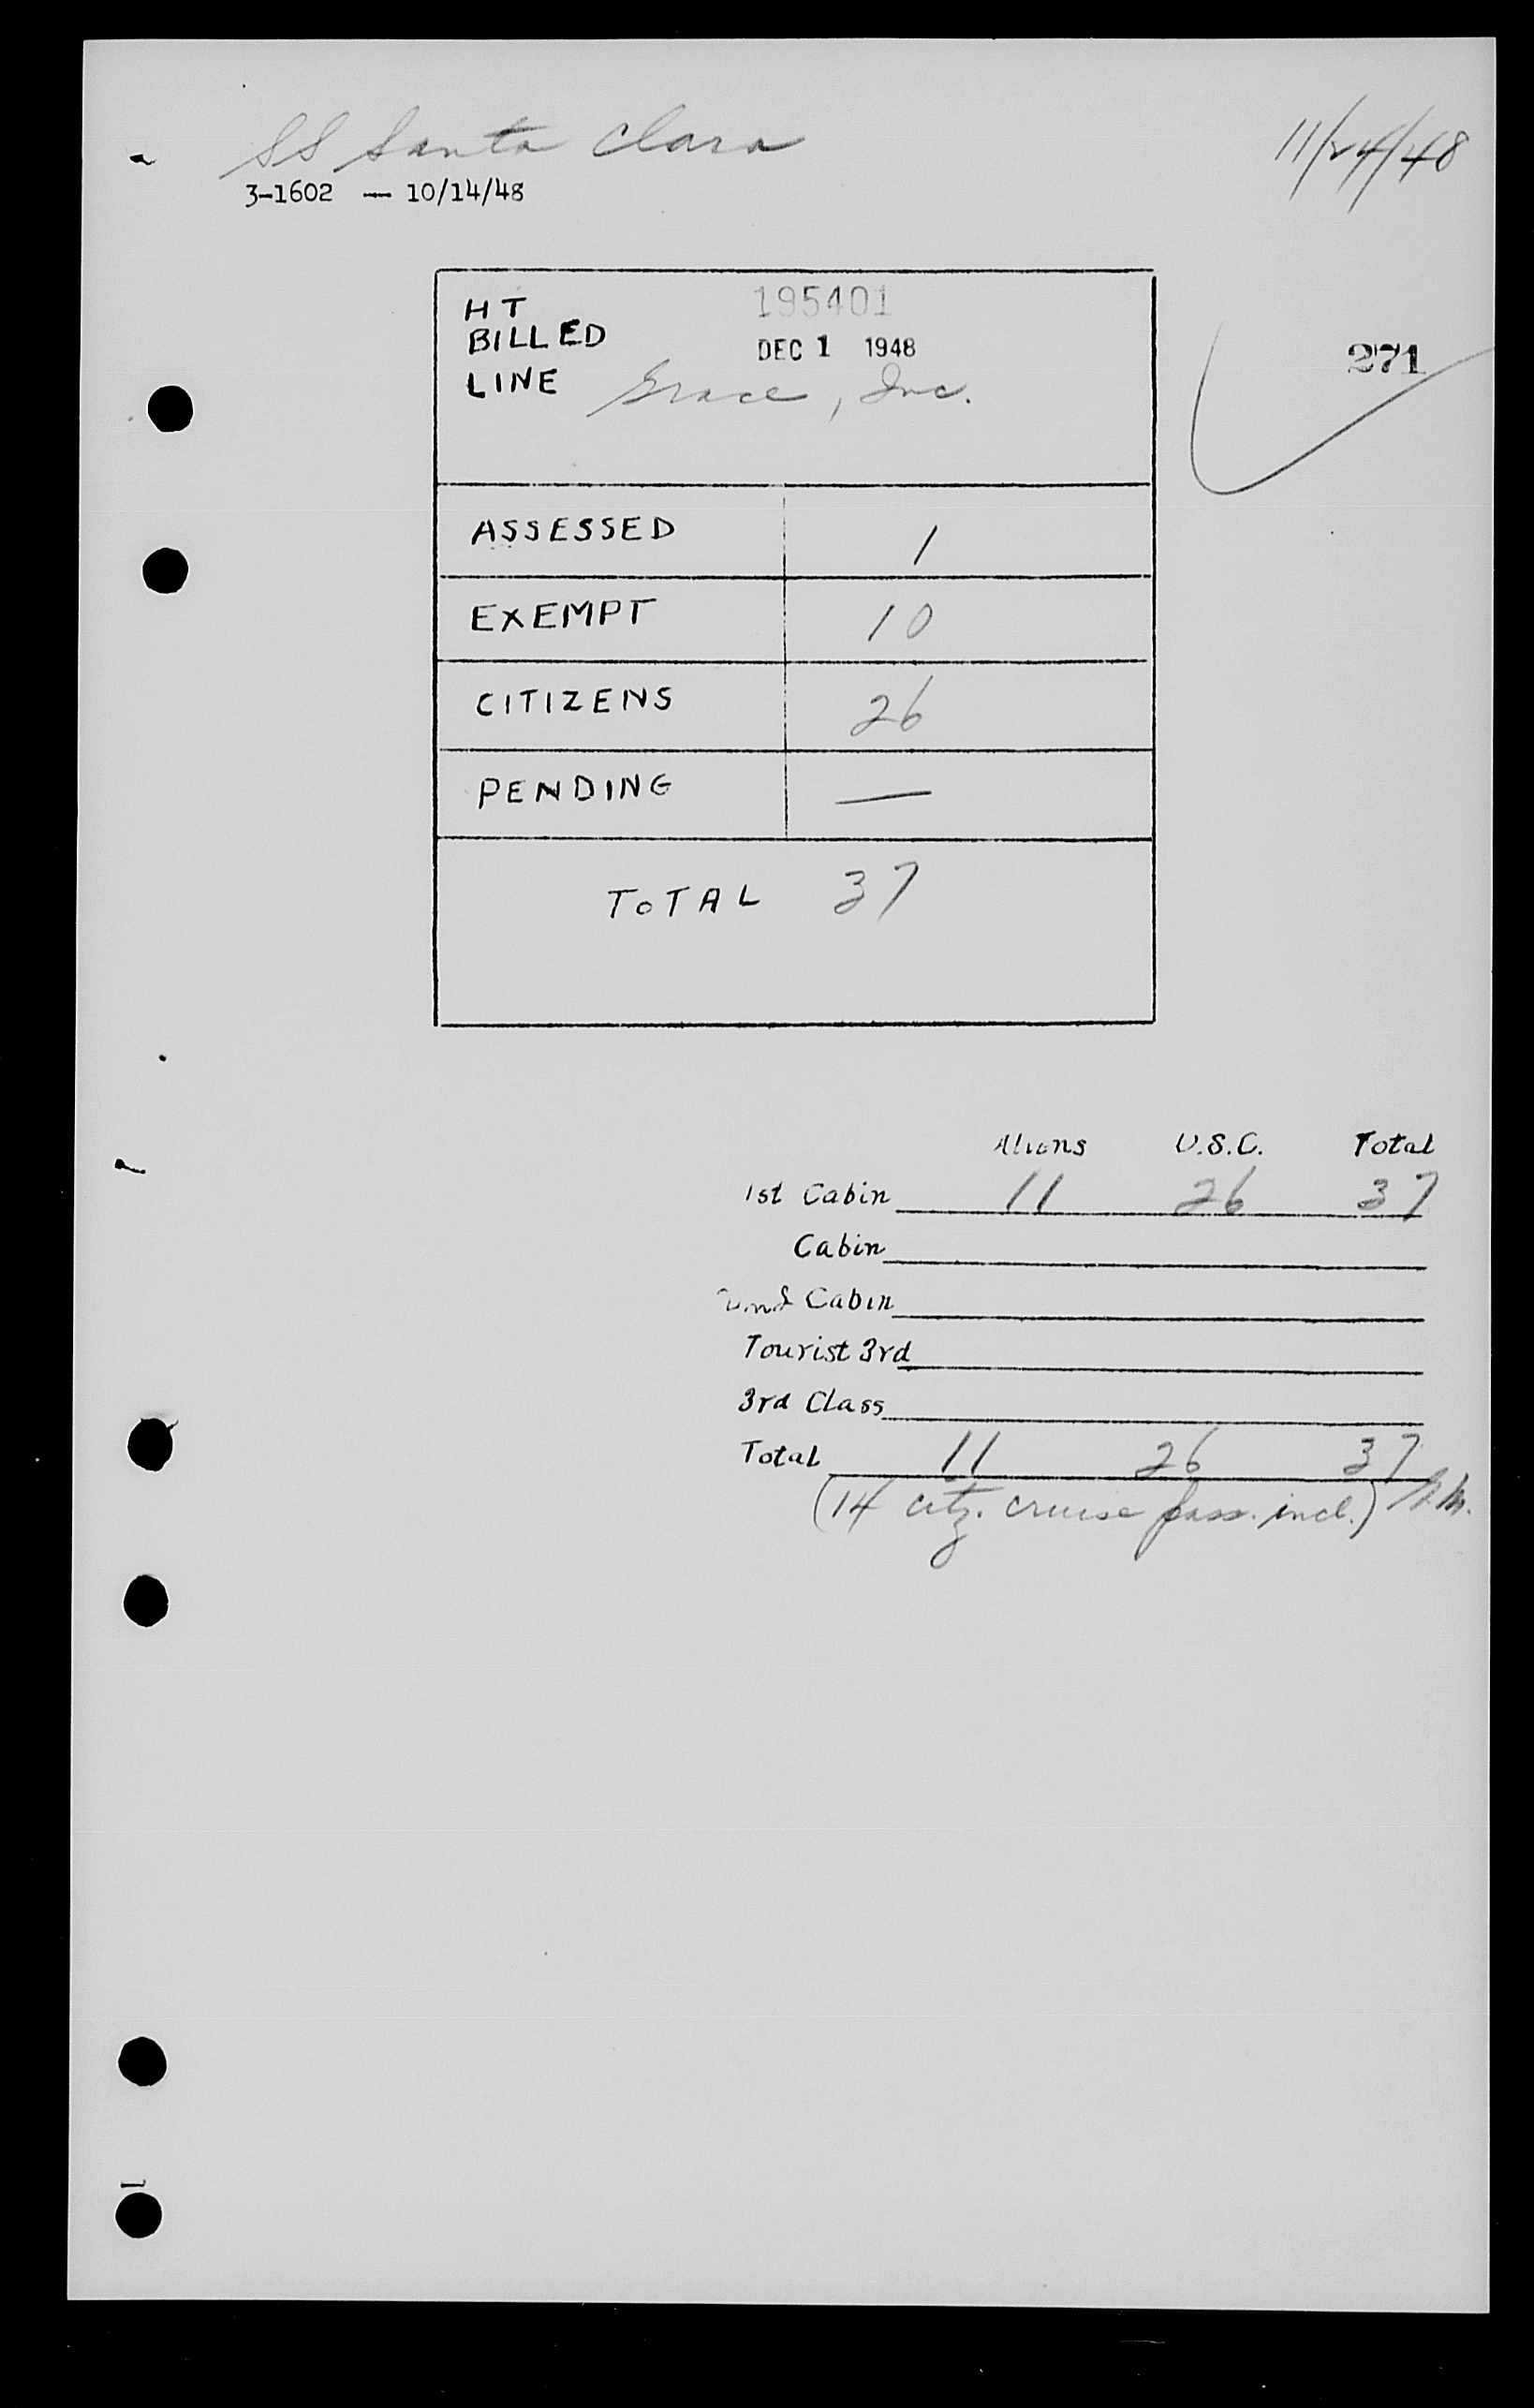 SS Santa Clara 11/24/48
3-1602 — 10/14/48
HT 195401
BILLED DEC 1 1948
LINE Grace, Inc.
271
ASSESSED 1
EXEMPT 10
CITIZENS 26
PENDING —
TOTAL 37
Aliens U.S.C. Total
1st Cabin 11 26 37
Cabin
Cabin
Tourist 3rd
3rd Class
Total 11 26 37
(14 citz. cruise pass. incl.)